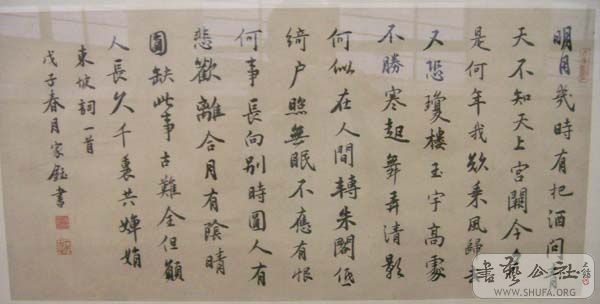 明月幾時有把酒問青
天不知天上宮闕今夕
是何年我欲乘風歸去
又恐瓊樓玉宇高處
不勝寒起舞弄清影
何似在人間轉朱閣低
綺户照無眠不應有恨
何事長向别時圓人有
悲歡離合月有陰晴
圓缺此事古難全但願
人長久千裏共嬋娟
東坡詞一首
戊子春月家鈺書
書藝公社
WWW.SHUFA.ORG